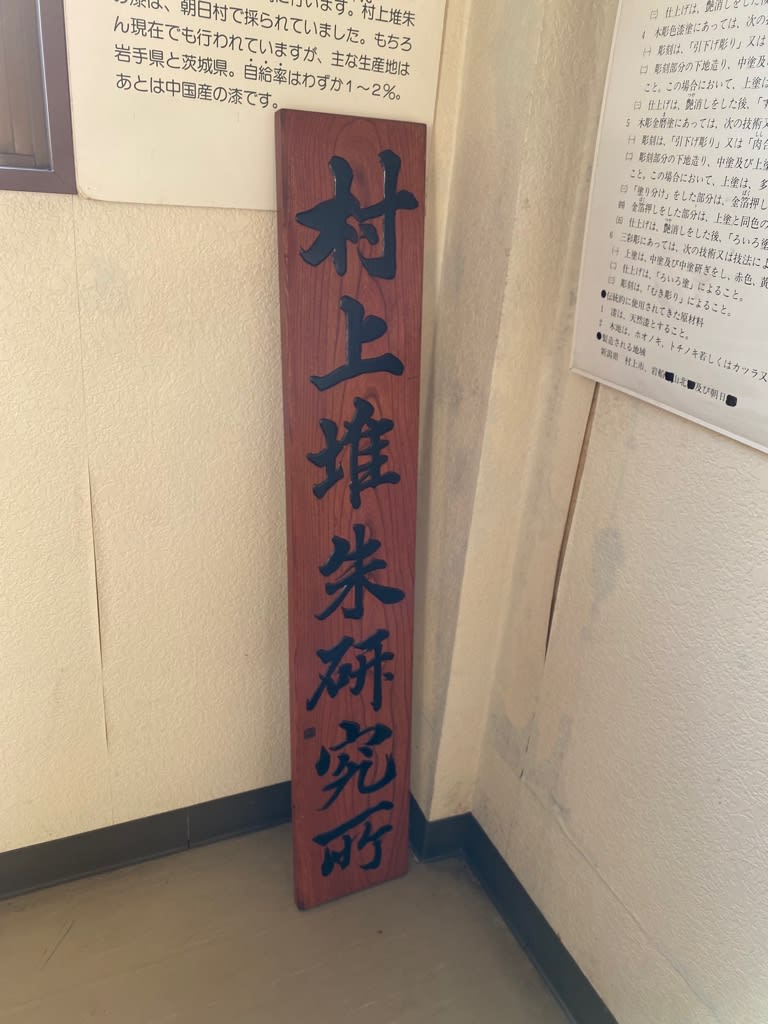 行います。村上堆朱
の漆は、朝日村で採られていました。もちろ
ん現在でも行われていますが、主な生産地は
岩手県と茨城県。自給率はわずか1～2%。
あとは中国産の漆です。
村上堆朱研究所
㈢ 仕上げは、艶消しをした後
4 木彫色漆塗にあっては、次の
㈠ 彫刻は、「引下げ彫り」又は
㈡ 彫刻部分の下地造り、中塗及
こと。この場合において、上塗は
㈢ 仕上げは、艶消しをした後、「す
5 木彫金磨塗にあっては、次の技術又
㈠ 彫刻は、「引下げ彫り」又は「肉合
㈡ 彫刻部分の下地造り、中塗及び上塗
こと。この場合において、上塗は、多
㈢ 「塗り分け」をした部分は、金箔押し
㈣ 金箔押しをした部分は、上塗と同色の
㈤ 仕上げは、艶消しをした後、「ろいろ塗
6 三彩彫にあっては、次の技術又は技法によ
㈠ 上塗は、中塗及び中塗研ぎをし、赤色、黄
㈡ 仕上げは、「ろいろ塗」によること。
㈢ 彫刻は、「むき彫り」によること。
●伝統的に使用されてきた原材料
1 漆は、天然漆とすること。
2 木地は、ホオノキ、トチノキ若しくはカツラ又
●製造される地域
新潟県 村上市、岩船 山北 及び朝日